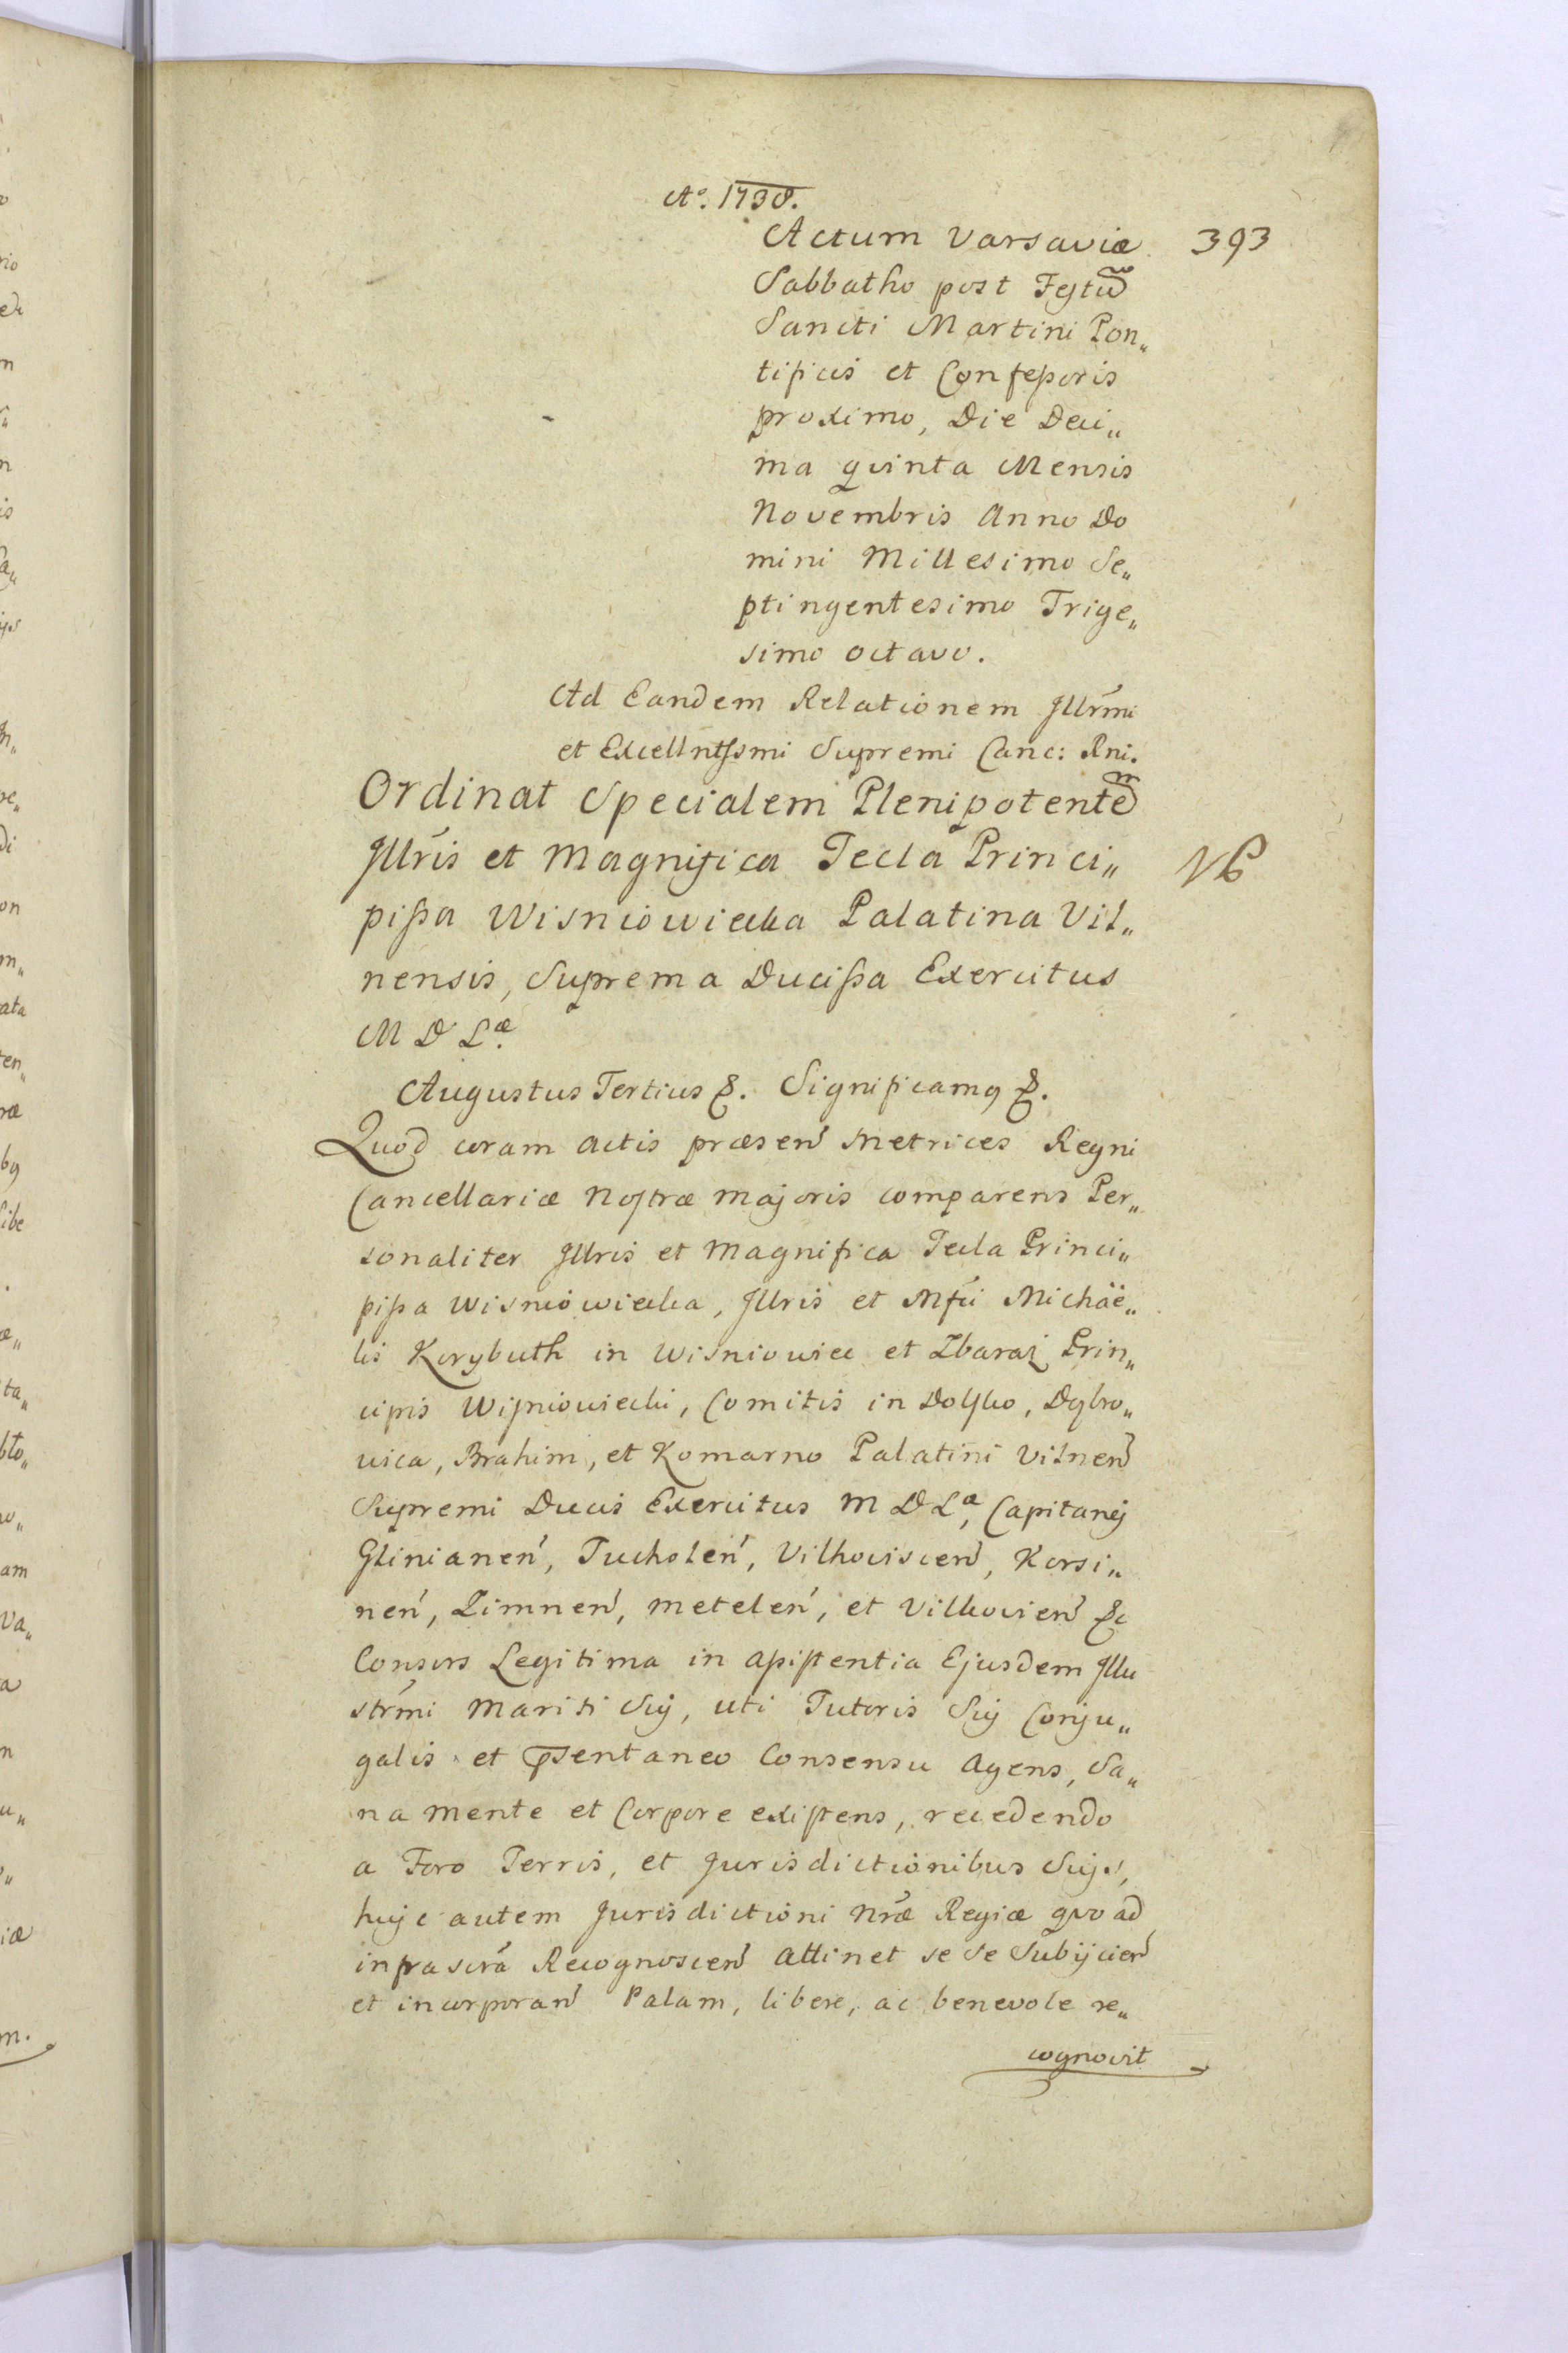 Aº. 1738.
Actum Varsaviæ 393
Sabbatho post Festũ
Sancti Martini Pon„
tificis et Confeßoris
proximo, Die Deci„
ma qvinta Mensis
Novembris Anno Do
mini Millesimo Se„
ptingentesimo Trige„
simo octavo.
Ad Eandem Relationem Jllrm̃i
et Excellntſsmi Supremi Canc: Rni.
Ordinat Specialem Plenipotentẽ
Jllrĩs et Magnifica Tecla Princi„
pißa Wisniowiecka Palatina Vil„
nensis, Suprema Ducißa Exercitus
M D Læ.
Augustus Tertius &. Significamꝯ &.
Quod coram Actis præsen̄ Metrices Regni
Cancellariæ Nostræ Majoris comparens Per„
sonaliter Jllris et Magnifica Tecla Princi„
pißa Wisniowiecka, Jllris et Mfci Michäe„
lis Korybuth in Wisniowiec et Zbaraż Prin„
cipis Wiſniowiecki, Comitis in Dolſko, Dąbro„
vica, Brahim, et Komarno Palatini Vilnen̄
Supremi Ducis Exercitus M D Læ, Capitanej
Glinianen̄, Tucholen̄, Vilkoviscen̄, Korsi„
nen̄, Zimnen̄, Metelen̄, et Vilkovien̄ &c
Consors Legitima in aßiſtentia Ejusdem Jllu
strm̃i Mariti Sui, uti Tutoris Sui Conju„
galis et p̄sentaneo Consensu Agens, Sa„
na mente et Corpore exiſtens, recedendo
a Foro Terris, et Jurisdictionibus Suijs,
huic autem Jurisdictioni Nræ̃ Regiæ qvoad
infrascrã Recognoscen̄ attinet se se Subijcien̄
et incorporan̄ Palam, libere, ac benevole re„
cognovit